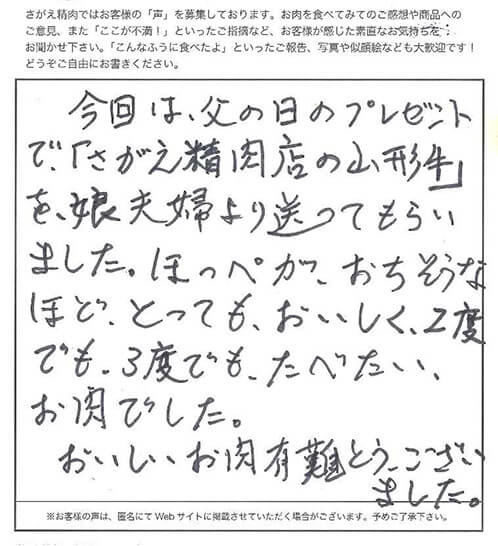 さがえ精肉ではお客様の「声」を募集しております。お肉を食べてみてのご感想や商品への
ご意見、また「ここが不満！」といったご指摘など、お客様が感じた素直なお気持ちを、
お聞かせ下さい。「こんなふうに食べたよ」といったご報告、写真や似顔絵なども大歓迎です！
どうぞご自由にお書きください。
今回は、父の日のプレゼント
で、「さがえ精肉店の山形牛」
を、娘夫婦より送ってもらい
ました。ほっぺが、おちそうな
ほど、とっても、おいしく、2度
でも、3度でも、たべたい、
お肉でした。
おいしいお肉有難とう、ござい
ました。
※お客様の声は、匿名にてWebサイトに掲載させていただく場合がございます。予めご了承下さい。